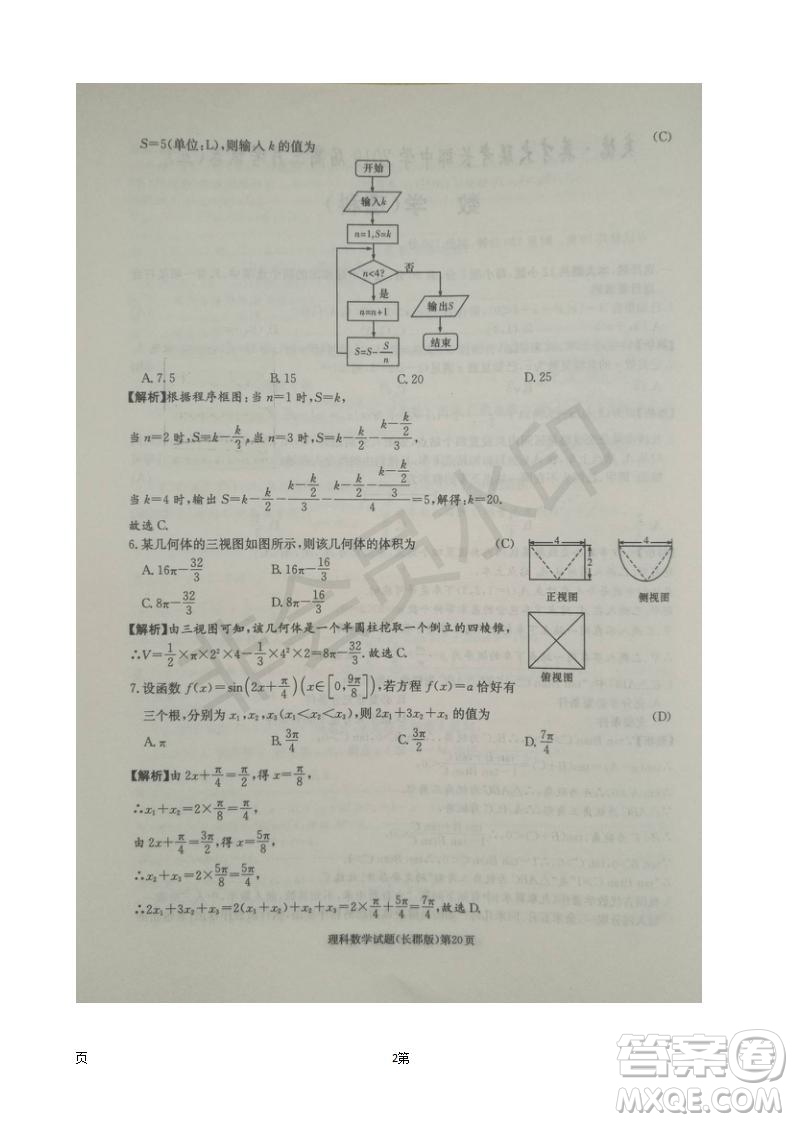 S=5(单位:L),则输入 k 的值为 (C)
开始
输入k
n=1,S=k
n<4? 否
是
n=n+1 输出S
S=S-S/n 结束
A. 7.5 B. 15 C. 20 D. 25
【解析】根据程序框图:当 n=1 时,S=k,
当 n=2 时,S=k-k/2,当 n=3 时,S=k-k/2-(k-k/2)/3,
当 k=4 时,输出 S=k-k/2-(k-k/2)/3-(k-k/2-(k-k/2)/3)/4=5,解得:k=20.
故选 C.
6. 某几何体的三视图如图所示,则该几何体的体积为 (C)
A. 16π-32/3 B. 16π-16/3
C. 8π-32/3 D. 8π-16/3
4 2 4
正视图 侧视图
俯视图
【解析】由三视图可知,该几何体是一个半圆柱挖取一个倒立的四棱锥,
∴V=1/2×π×2²×4-1/3×4²×2=8π-32/3. 故选 C.
7. 设函数 f(x)=sin(2x+π/4)(x∈[0,9π/8]),若方程 f(x)=a 恰好有
三个根,分别为 x₁,x₂,x₃(x₁<x₂<x₃),则 2x₁+3x₂+x₃ 的值为 (D)
A. π B. 3π/4 C. 3π/2 D. 7π/4
【解析】由 2x+π/4=π/2,得 x=π/8,
∴x₁+x₂=2×π/8=π/4,
由 2x+π/4=3π/2,得 x=5π/8,
∴x₂+x₃=2×5π/8=5π/4,
∴2x₁+3x₂+x₃=2(x₁+x₂)+x₂+x₃=2×π/4+5π/4=7π/4,故选 D.
理科数学试题(长郡版)第20页
非会员水印
页 2第
答案圈
MXQE.COM